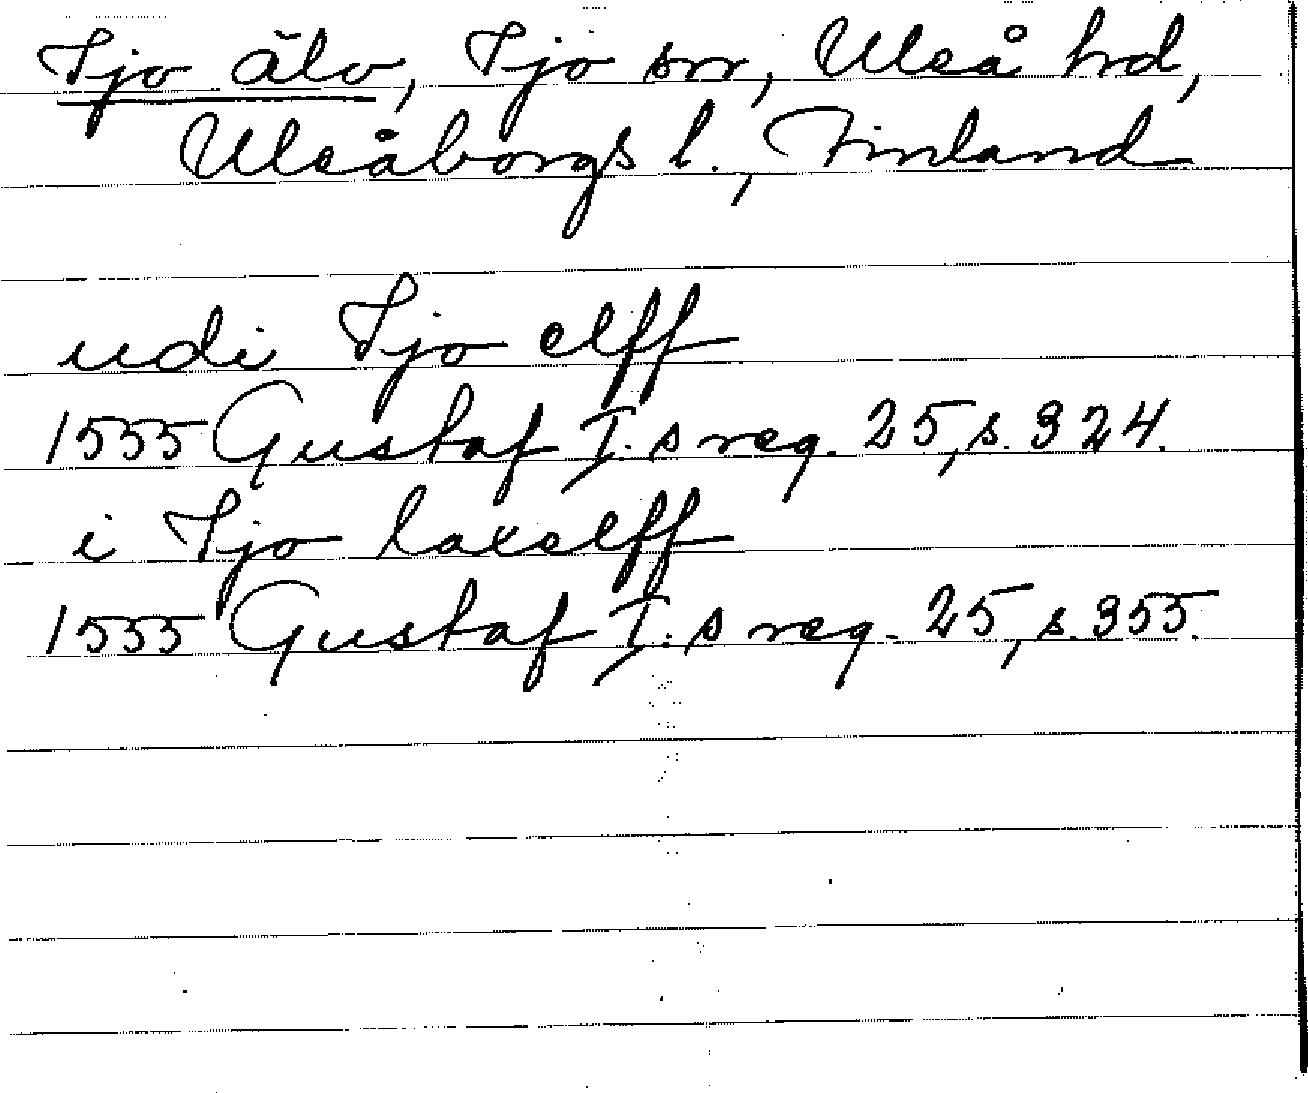 Ijo älv, Ijo sn, Uleå hd,
Uleåborgs l., Finland
udi Ijo elff
1555 Gustaf I:s reg. 25, s. 324.
i Ijo laxelff
1555 Gustaf I:s reg. 25, s. 355.